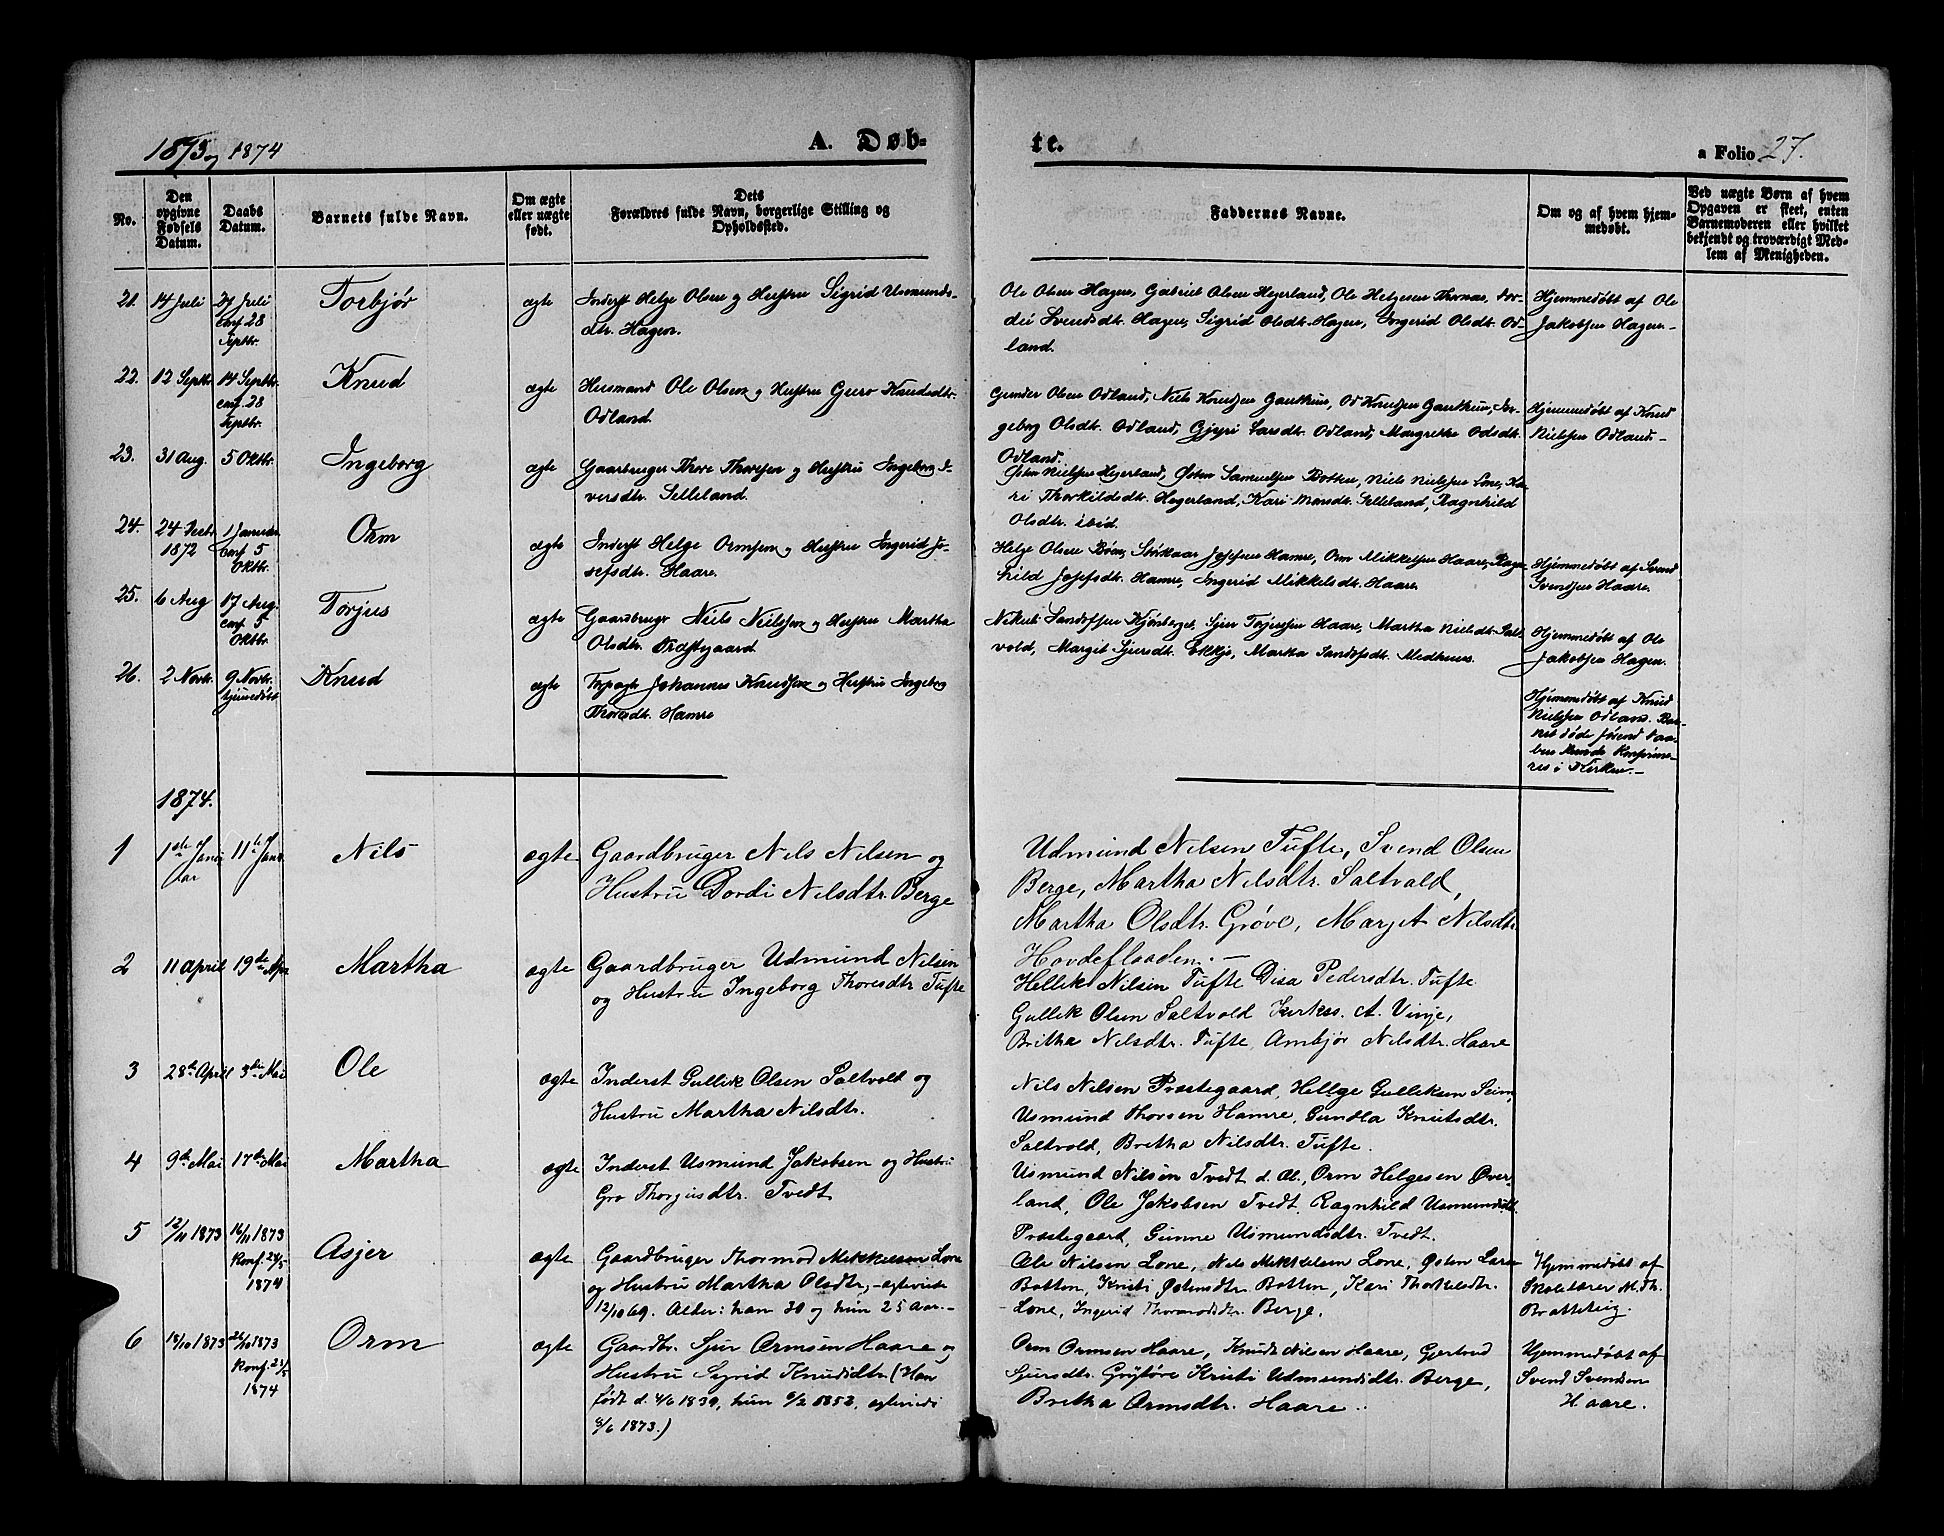 1873 og 1874
A. Døb-
te.
a Folio 27.
No.
Den opgivne Fødsels Datum.
Daabs Datum.
Barnets fulde Navn.
Om ægte eller uægte født.
Dets Forældres fulde Navn, borgerlige Stilling og Opholdssted.
Faddernes Navne.
Om og af hvem hjem-
medøbt.
Ved uægte Børn af hvem
Opgaven er skeet, enten
Barnemoderen eller hvilket
bekjendt og troværdigt Med-
lem af Menigheden.
21. 14 Juli
27 Juli
conf. 28
Septbr.
Torbjør
ægte
Inderst Helge Olsen og Hustru Sigrid Usmunds-
dtr. Hagen.
Ole Olsen Hagen, Gabriel Olsen Hegerland, Ole Helgesen Thornæs, Dor-
dei Svendsdt. Hagen, Sigrid Olsdt. Hagen, Ingerid Olsdt. Od-
land.
Hjemmedøbt af Ole
Jakobsen Hagen.
22. 12 Septbr.
14 Septbr.
conf. 28
Septbr.
Knud
ægte
Husmand Ole Olsen og Hustru Guro Knudsdtr.
Odland.
Gunder Olsen Odland, Niels Knudsen Ganthun, Od Knudsen Ganthun, In-
geborg Olsdt. Odland, Gjyri Larsdt. Odland, Margrethe Odsdt.
Odland.
Hjemmedøbt af Knud
Nielsen Odland.
23. 31 Aug. 5 Oktbr.
Ingeborg
ægte
Gaarbruger Thore Thoresen og Hustru Ingeborg I-
versdtr. Selleland.
Østen Nielsen Hegerland, Østen Samuelsen Botten, Niels Nielsen Lone, Ka-
ri Thorkildsdt. Hegerland, Kari Monsdt. Selleland, Ragnhild
Olsdtr. ibid.
24. 24 Decbr.
1872
1 Januar
Conf. 5
Oktbr.
Orm
ægte
Inderst Helge Ormsen og Hustru Ingerid Jo-
sefsdtr. Haare.
Helge Olsen Bøen, Størkaar Josefsen Hamre, Orm Mikkelsen Haare, Ragn-
hild Josefsdt. Hamre, Ingerid Mikkelsdt. Haare.
Hjemmedøbt af Svend
Svendsen Haare.
25. 6 Aug
17 Aug.
conf. 5
Oktbr.
Torjus
ægte
Gaardbrugr Niels Nielsen og Hustru Martha
Olsdtr. Præstegaard.
Sandolfsen Kjønberget, Sjur Torjussen Haare, Martha Nielsdt. Salt-
vold, Margit Sjursdt. Ekkje, Martha Sandolfsdt. Medhuus.
Hjemmedøbt af Ole
Jakobsen Hagen.
26. 2 Novbr.
9 Novbr.
hjemedøbt
Knud
ægte
Johannes Knudsen og Hustru Ingeborg
Thoresdt. Hamre
Hjemmedøbt af Knud
Nielsen Odland. Bar-
net døde førend Daa-
ben kunde Konfirme-
res i Kirken.
1874.
1
1ste Janu
ar
11te Janr.
Nils
ægte
Gaardbruger Nils Nilsen og
Hustru Dordi Nilsdtr. Berge
Udmund Nilsen Tufte, Svend Olsen
Berge, Martha Nilsdtr. Saltvold,
Martha Olsdtr. Grøve, Marjet Nilsdtr.
Hovdeflaaden.
2
11 April 19de Apr.
Martha
ægte
Gaardbruger Udmund Nilsen
og Hustru Ingeborg Thoresdtr Tufte
Hellik Nilsen Tufte Disa Pedersdtr. Tufte
Gullik Olsen Saltvold Kirkss. A. Vinje,
Britha Nilsdtr. Tufte, Ambjør Nilsdtr. Haare
3
28de April 3die Mai
Ole
ægte
Inderst Gullik Olsen Saltvold og
Hustru Martha Nilsdtr.
Nils Nilsen Præstegaard, Hellge Gulliksen Seim,
Usmund Thorsen Hamre, Gundla Knutsdtr.
Saltvold, Britha Nilsdtr. Tufte.
4
9de Mai 17de Mai
Martha
ægte
Inderst Usmund Jakobsen og Hustru
Gro Thorjusdtr. Tvedt
Usmund Nilsen Tvedt d. Æl., Orm Helgesen Øver-
land, Ole Jakobsen Tvedt, Ragnhild Usmundsdt.
Præstegaard, Gunne Usmundsdtr. Tvedt.
5
12/11 1873
16/11 1873
Konf. 24/5
1874
Asjer
ægte
Gaardbruger Thormod Mikkelsen Lone
og Hustru Martha Olsdtr, - egteviede
12/10 69. Alder: han 30 og hun 25 Aar.
Ole Nilsen Lone, Nils Mikkelsen Lone, Østen Larsen
Botten, Kristi Østensdtr. Botten, Kari Thorkelsdtr.
Lone, Ingerid Thormodsdtr. Berge.
Hjemmedøbt af
Skolelærer M. Th.
Bratteteig.
6
18/10 1873
26/10 1873
Konf. 25/5
1874
Orm
ægte
Gaardbr. Sjur Ormsen Haare og
Hustru Sigrid Knudsdtr (Han
født d. 4/6 1839, hun 9/2 1852, egteviedi
8/6 1873.)
Orm Ormsen Haare, Knudt Nilsen Haare, Gjertrud
Sjursdtr. Grytøre Kristi Udmundsdtr. Berge,
Britha Ormsdtr. Haare.
Hjemmedøbt af
Svend Svendsen
Haare.